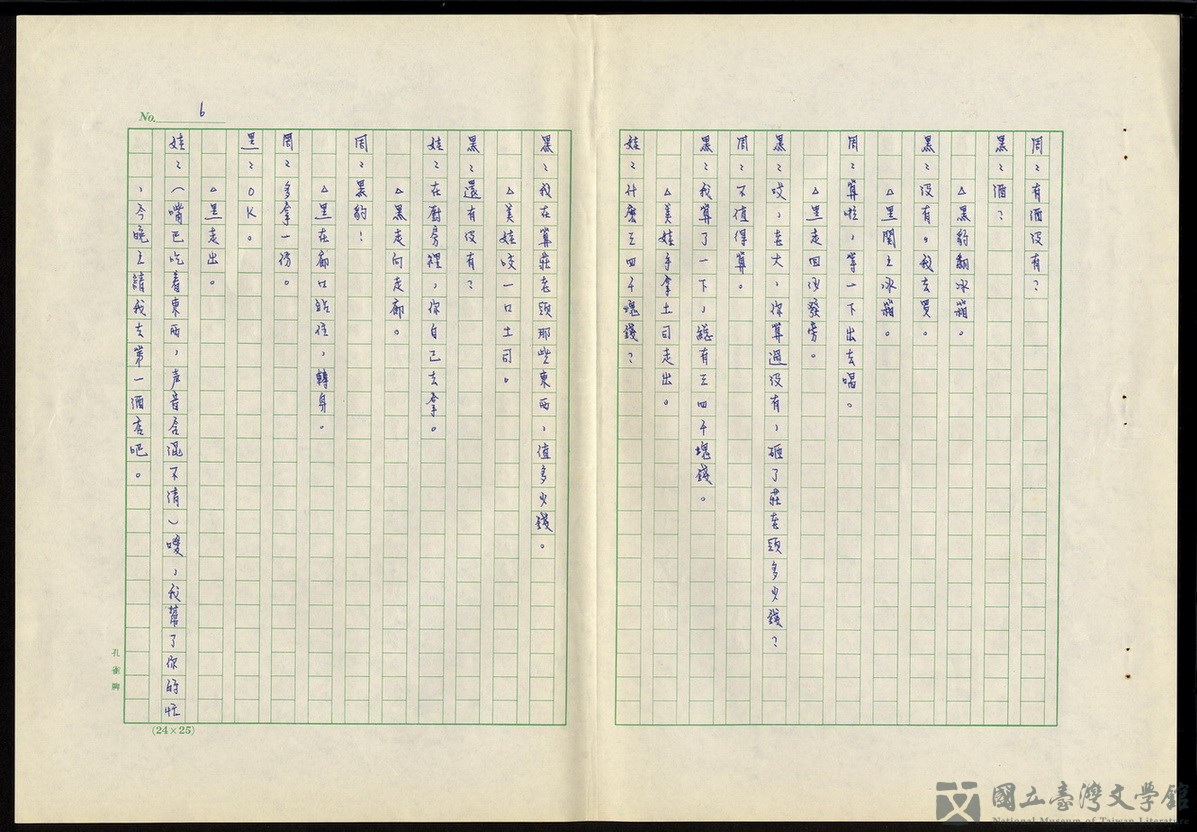 周：有酒没有？
黑：酒？
△黑豹翻冰箱。
黑：没有。我去買。
△黑関上冰箱。
周：算啦，等一下出去喝。
△黑走回沙發旁。
黑：哎，老大，你算過没有，砸了莊老頭多少錢？
周：不值得算。
黑：我算了一下，總有三四千塊錢。
△美娃手拿土司走出。
娃：什麽三四千塊錢？
黑：我在算莊老頭那些東西，值多少錢。
△美娃咬一口土司。
黑：還有没有？
娃：在廚房裡，你自己去拿。
△黑走向走廊。
周：黑豹！
△黑在廊口站住，轉身。
周：多拿一份。
黑：OK。
△黑走出。
娃：（嘴巴吃着東西，声音含混不清）嘜，我幫了你的忙
，今晚上請我去第一酒店吧。
No. 6
(24×25)
孔雀牌
國立臺灣文學館
National Museum of Taiwan Literature